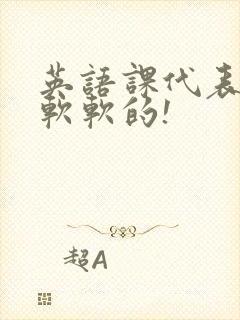 英語課代表
軟軟的!
超A